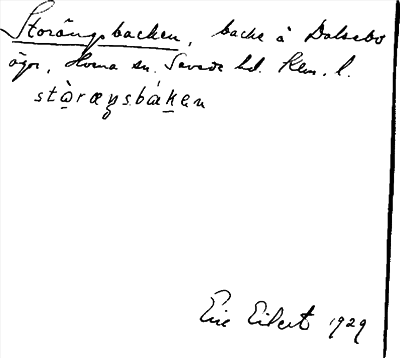 Storängsbacken, backe å Dalsebo
ägor, Horna sn. Sevede hd. Klm. l.
stò̱ræŋsbàḵen
Eric Eilert 1929